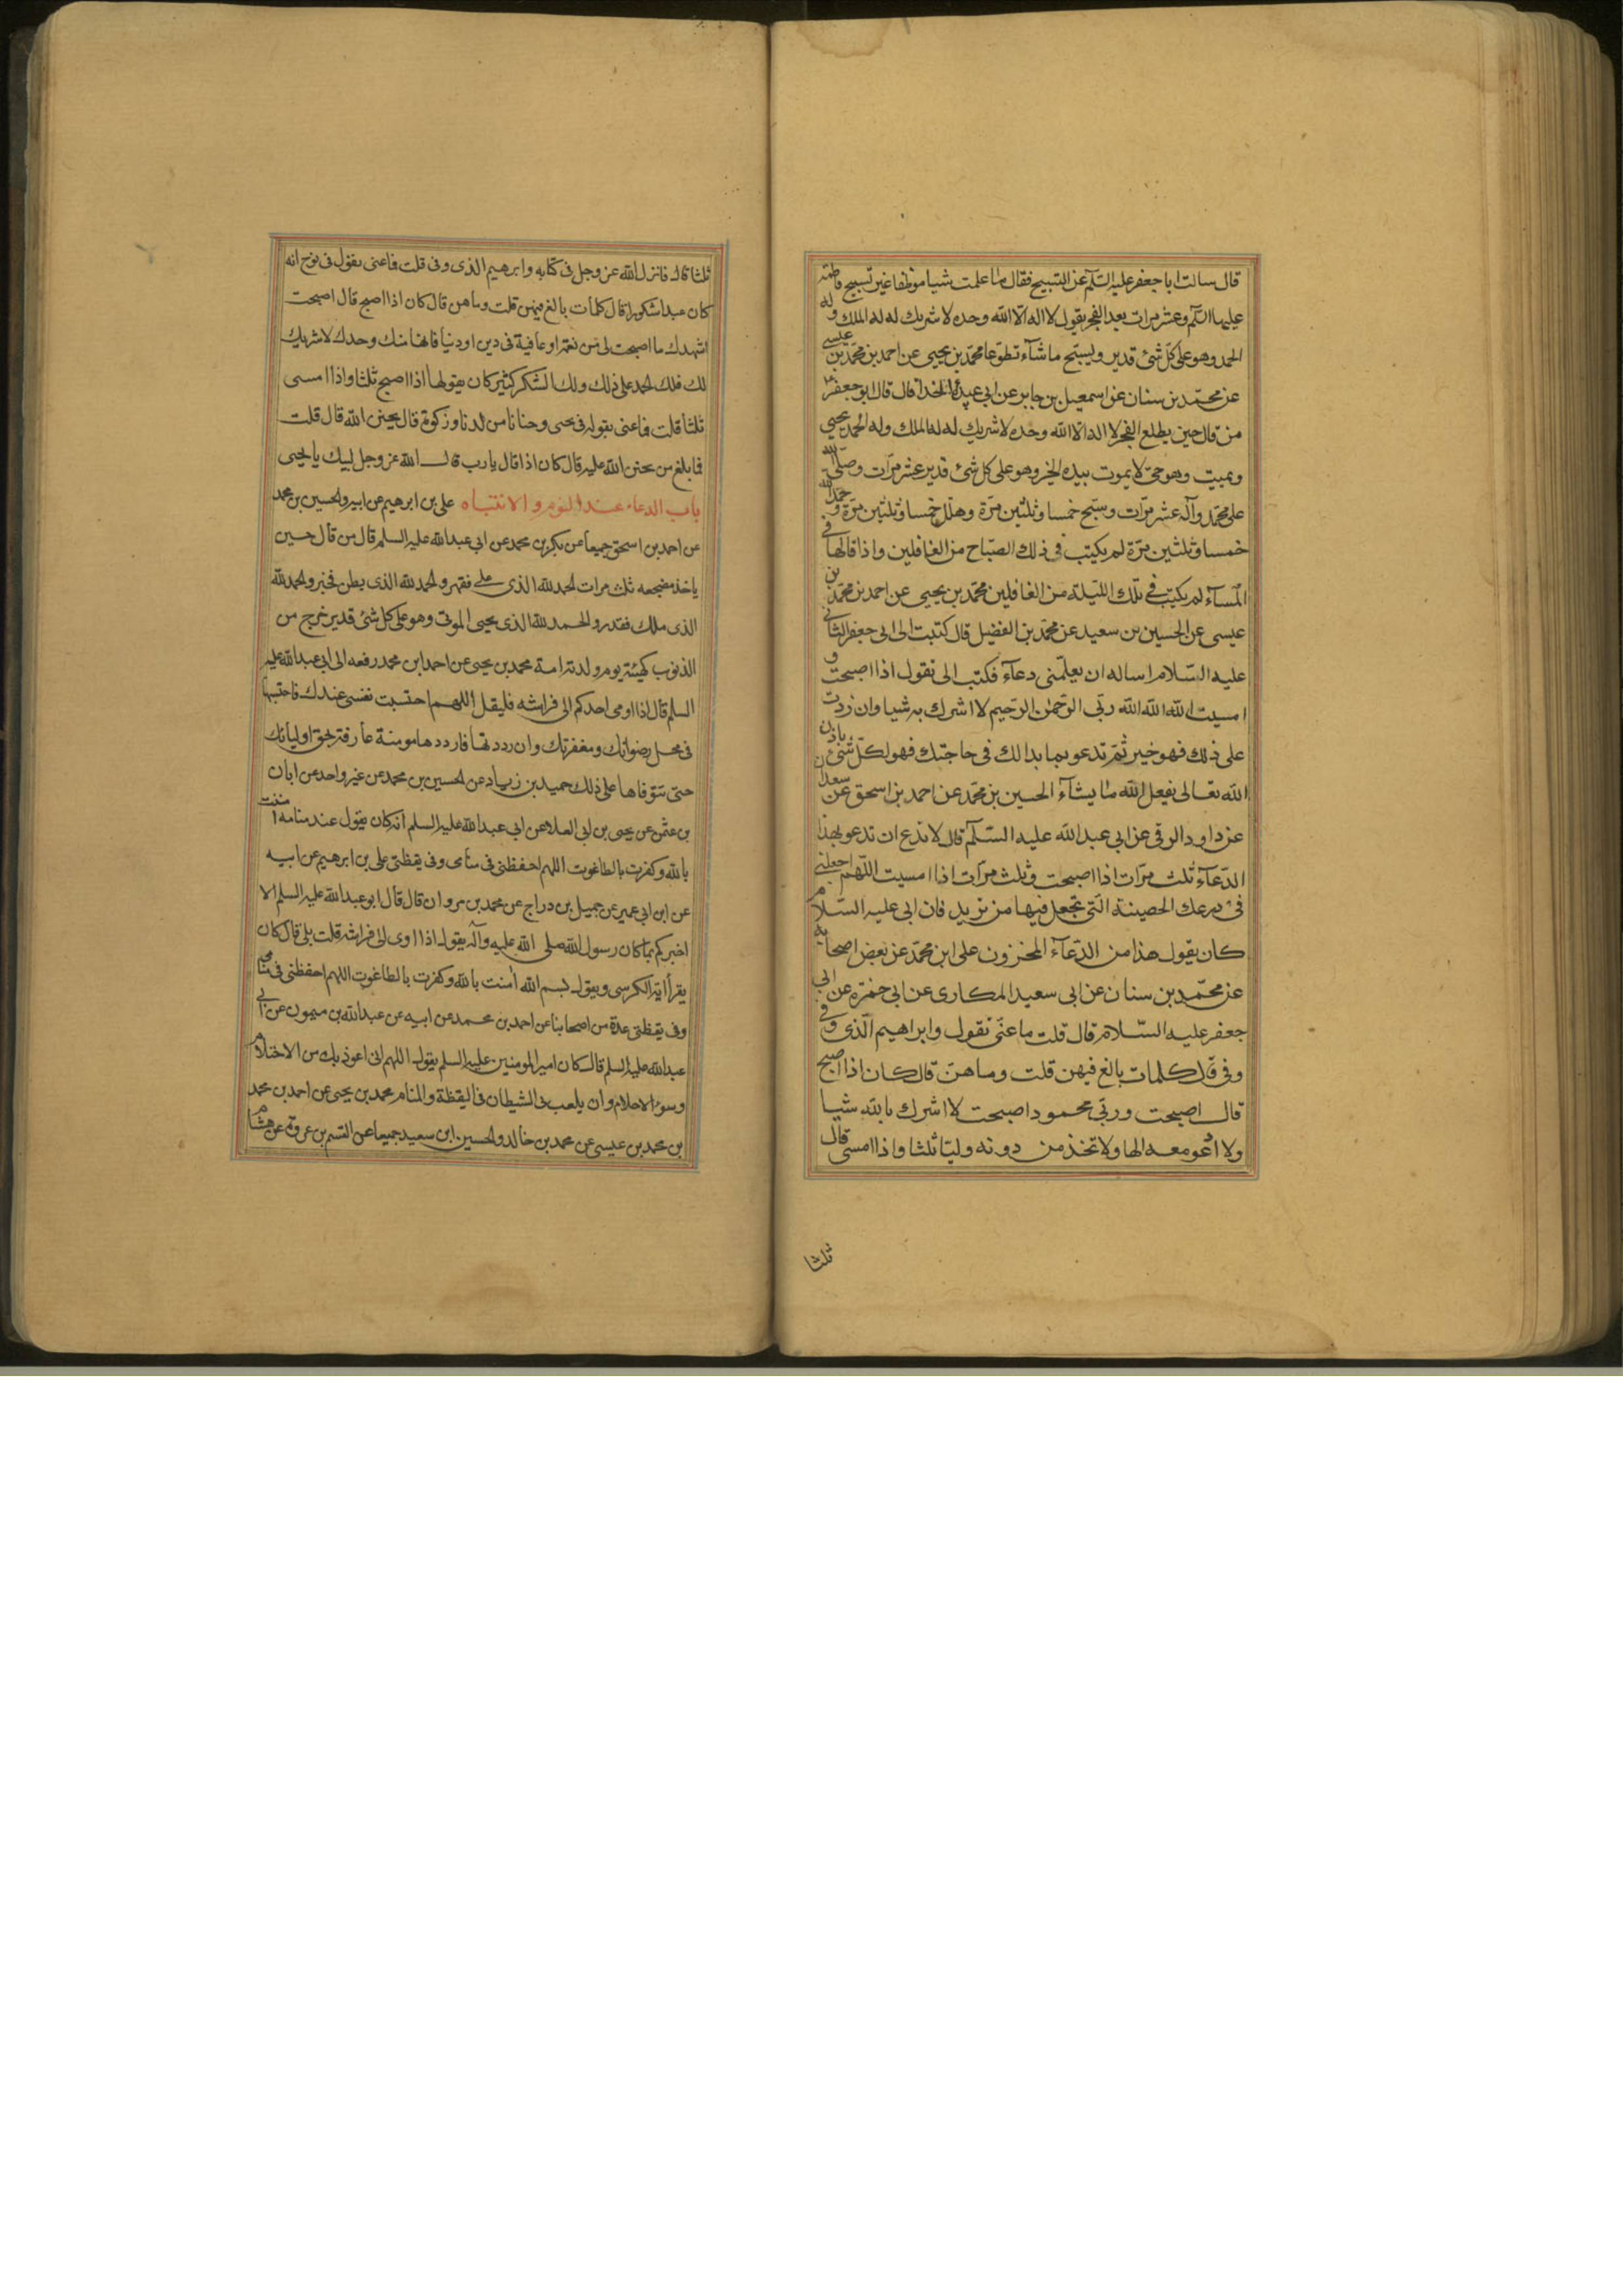 قال سالت ابا جعفر عليه السلم عن التسبيح فقال ما علمت شيا موظفا غير تسبيح فاطمه
عليها السلم وعشر مرات بعد الفجر يقول لا اله الا الله وحده لا شريك له له الملك وله
الحمد وهو على كل شئ قدير ويسبح ما شآء تطوعا محمد بن يحيى عن احمد بن محمد بن عيسى
عن محمد بن سنان عن اسمعيل بن جابر عن ابى عبيدة الحذا قال قال ابو جعفر ع
من قال حين يطلع الفجر لا اله الا الله وحده لا شريك له له الملك وله الحمد يحيى
ويميت وهو حى لا يموت بيده الخير وهو على كل شئ قدير عشر مرات وصلى الله
على محمد وآله عشر مرات وسبح خمسا وثلثين مرة وهلل خمسا وثلثين مرة وحمد الله
خمسا وثلثين مرة لم يكتب فى ذلك الصباح من الغافلين واذا قالها فى
المسآء لم يكتب فى تلك الليلة من الغافلين محمد بن يحيى عن احمد بن محمد بن
عيسى عن الحسين بن سعيد عن محمد بن الفضيل قال كتبت الى ابى جعفر الثانى
عليه السلام اساله ان يعلمنى دعآء فكتب الى تقول اذا اصبحت و
امسيت الله الله الله ربى الرحمن الرحيم لا اشرك به شيا وان زدت
على ذلك فهو خير ثم تدعو بما بدا لك فى حاجتك فهو لكل شئ باذن
الله تعالى يفعل الله ما يشآء الحسين بن محمد عن احمد بن اسحق عن سعدان
عن داود الرقى عن ابى عبد الله عليه السلم قال لا تدع ان تدعو بهذا
الدعآء ثلث مرات اذا اصبحت وثلث مرات اذا امسيت اللهم اجعلنى
فى درعك الحصينة التى تجعل فيها من تريد فان ابى عليه السلام
كان يقول هذا من الدعآء المخزون على ابن محمد عن بعض اصحابه
عن محمد بن سنان عن ابى سعيد المكارى عن ابى حمزه عن ابى
جعفر عليه السلام قال قلت ما عنى بقول وابراهيم الذى و فى
وفى قال كلمات بالغ فيهن قلت وما هن قال كان اذا اصبح
قال اصبحت وربى محمود اصبحت لا اشرك بالله شيا
ولا ادعو معه الها ولا تخذ من دونه وليا ثلثا واذا امسى قال
ثلثا
ثلثا قال فانزل الله عز وجل فى كتابه وابرهيم الذى وفى قلت فما عنى بقوله فى نوح انه
كان عبدا شكورا قال كلمات بالغ فيهن قلت وما هن قال كان اذا اصبح قال اصبحت
اشهدك ما اصبحت لى من نعمة او عافية فى دين او دنيا فانها منك وحدك لا شريك
لك فلك الحمد على ذلك ولك الشكر كثير كان يقولها اذا اصبح ثلثا واذا امسى
ثلثا قلت فما عنى بقوله فى يحيى وحنانا من لدنا وزكوة قال تحنن الله قال قلت
فما بلغ من تحنن الله عليه قال كان اذا قال يا رب قال الله عز وجل لبيك يا يحيى
باب الدعاء عند النوم والانتباه على بن ابرهيم عن ابيه والحسين بن محمد
عن احمد بن اسحق جميعا عن بكر بن محمد عن ابى عبد الله عليه السلم قال من قال حين
ياخذ مضجعه ثلث مرات الحمد لله الذى على فقهر والحمد لله الذى بطن فخبر والحمد لله
الذى ملك فقدر والحمد لله الذى يحيى الموتى وهو على كل شئ قدير خرج من
الذنوب كهيئته يوم ولدته امه محمد بن يحيى عن احمد ابن محمد رفعه الى ابى عبد الله عليه
السلم قال اذا اوى احدكم الى فراشه فليقل اللهم احتسبت نفسى عندك فاحتسبها
فى محل رضوانك ومغفرتك وان رددتها فارددها مومنة عارفة بحق اوليائك
حتى تتوفاها على ذلك حميد بن زياد عن الحسين بن محمد عن غير واحد عن ابان
بن عثمن عن يحيى بن ابى العلا عن ابى عبد الله عليه السلم انه كان يقول عند منامه امنت
بالله وكفرت بالطاغوت اللهم احفظنى فى منامى وفى يقظتى على بن ابرهيم عن ابيه
عن ابن ابى عمير عن جميل بن دراج عن محمد بن مروان قال قال ابو عبد الله عليه السلم الا
اخبركم بما كان رسول الله صلى الله عليه وآله يقول اذا اوى الى فراشه قلت بلى قال كان
يقرأ اية الكرسى ويقول بسم الله امنت بالله وكفرت بالطاغوت اللهم احفظنى فى منامى
وفى يقظتى عدة من اصحابنا عن احمد بن محمد عن ابيه عن عبد الله بن ميمون عن ابى
عبد الله عليه السلم قال كان امير المومنين عليه السلم يقول اللهم انى اعوذ بك من الاحتلام
وسوء الاحلام وان يلعب بى الشيطان فى اليقظة والمنام محمد بن يحيى عن احمد بن محمد
بن محمد بن عيسى عن محمد بن خالد والحسين ابن سعيد جميعا عن القسم بن عروة عن هشام